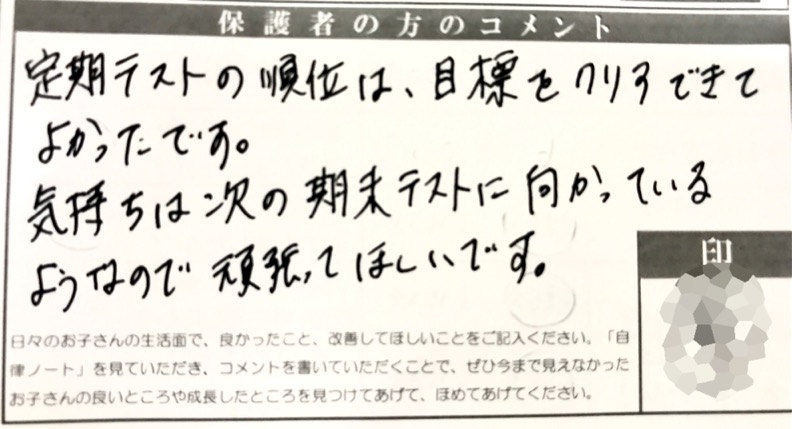 保護者の方のコメント
定期テストの順位は、目標をクリアできて
よかったです。
気持ちは次の期末テストに向かっている
ようなので頑張ってほしいです。
印
日々のお子さんの生活面で、良かったこと、改善してほしいことをご記入ください。「自
律ノート」を見ていただき、コメントを書いていただくことで、ぜひ今まで見えなかった
お子さんの良いところや成長したところを見つけてあげて、ほめてあげてください。